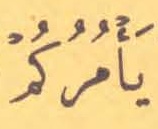 يَأْمُرُكُمْ